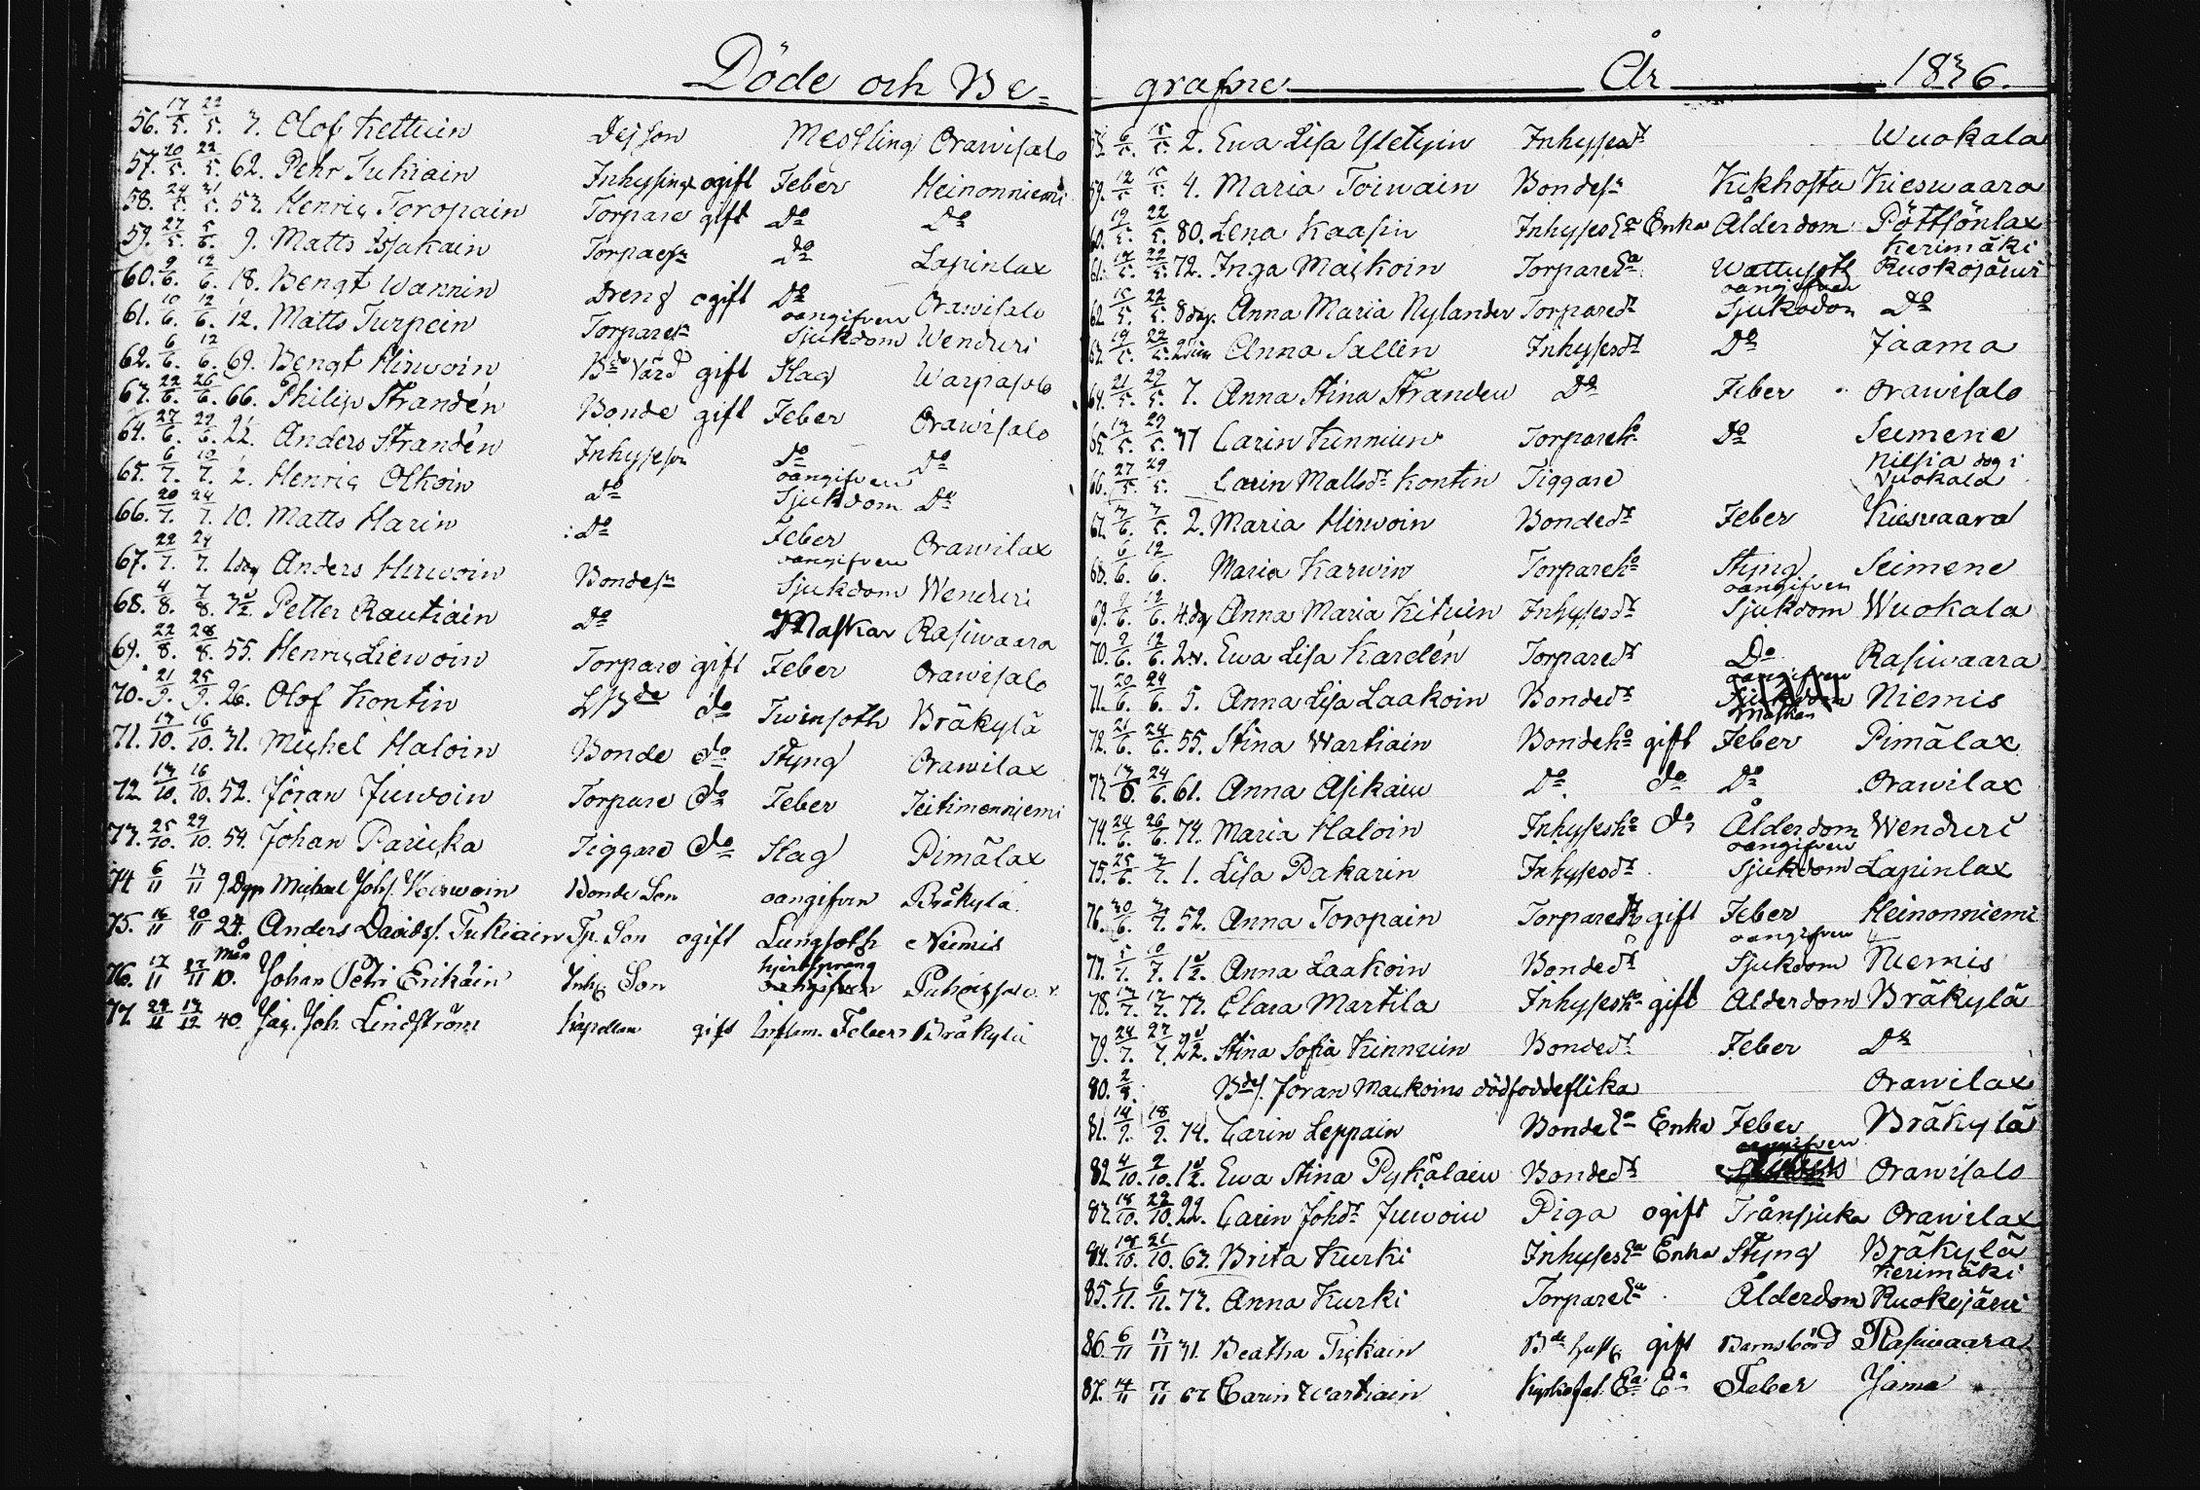 Döde och Be=
56. 17/5. 22/5. 3. Olof Kettuin Dessson Messling Orawisalo
57. 20/5. 22/5. 62. Pehr Tukiain Inhysing ogift Feber Heinonniemi
58. 24/5. 31/5. 53. Henric Toropain Torpare gift Do Do
59. 27/5. 5/6. 9. Matts Issakain Torparesn Do Lapinlax
60. 9/6. 12/6. 18. Bengt Wannin Dreng ogift Do Orawisalo
61. 10/6. 12/6. 12. Matts Turpein Torparesn oangifven Sjukdom Wenduri
62. 6/6. 12/6. 69. Bengt Hirwoin Bde Värd gift Slag Warpasalo
63. 22/6. 26/6. 66. Philip Strandén Bonde gift Feber Orawisalo
64. 27/6. 29/6. 2½. Anders Strandén Inhysesn Do Do
65. 6/7. 10/7. 2. Henric Olkoin do oangifven Sjukdom Do
66. 20/7. 24/7. 10. Matts Harin Do Feber Orawilax
67. 22/7. 24/7. 1dag Anders Hirwoin Bondesn oangifven Sjukdom Wenduri
68. 4/8. 7/8. 3½. Petter Rautiain Do Maskar Rasiwaara
69. 22/8. 28/8. 55. Henric Liewoin Torpare gift Feber Orawisalo
70. 21/9. 25/9. 26. Olof Kontin do Twinsoth Bräkylä
71. 13/10. 16/10. 31. Michel Haloin Bonde do Styng Orawilax
72. 13/10. 16/10. 52. Jöran Juwoin Torpare do Feber Teitimonniemi
73. 25/10. 29/10. 54. Johan Paricka Tiggare do Slag Pimälax
74 6/11 13/11 9 Dgr Michael Johs. Hirwoin Bonde Son oangifven Bräkylä
75. 16/11 20/11 24. Anders Davidss. Tukiain Tp. Son ogift Lungsoth Niemis
76. 17/11 27/11 10. Mån Johan Petri Erikäin Inhs Son
77. 24/11 13/12 40. Jac. Joh. Lindström Capellan gift Inflam. Feber Bräkylä
grafne År 1836.
58. 6/5. 15/5. 2. Ewa Lisa Yletyin Inhysesdr Wuokala
59. 12/5. 15/5. 4. Maria Toiwain Bondedr Kikhosta Kieswaara
60. 19/5. 22/5. 80. Lena Kaasin Inhyses Ea Enka Ålderdom Pöttsönlax
61. 17/5. 22/5. 72. Inga Mackoin Torpare Ea Wattusoth Kerimäki Ruokojärwi
62. 15/5. 22/5. 8 dag. Anna Maria Nylander Torparedr oangifven Sjukdom Do
63. 19/5. 22/5. Anna Sallén Inhysesdr Do Jaama
64. 21/5. 29/5. 7. Anna Stina Stranden Do Feber Orawisalo
65. 13/5. 29/5. 37 Carin Kinnuin Torpareho Do Seimene
66. 27/5. 29/5. Carin Mattsdr Kontin Tiggare Nilsia dog i Wuokala
67. 3/6. 2. Maria Hirwoin Bondedr Feber Kieswaara
68. 6/6. 12/6. Maria Karwin Torpareho Styng Seimene
69. 9/6. 12/6. 4. dag Anna Maria Kituin Inhysesdr oangifven Sjukdom Wuokala
70. 9/6. 12/6. 2v. Ewa Lisa Kardén Torparedr Do Rasiwaara
71. 20/6. 24/6. 5. Anna Lisa Laakoin Bondedr oangifven Maskar Niemis
72. 21/6. 24/6. 55. Stina Wartiain Bondeho gift Feber Pimälax
73. 13/6. 24/6. 61. Anna Asikain Do do Do Orawilax
74. 24/6. 26/6. 74. Maria Haloin Inhysesho do Ålderdom Wenduri
75. 25/6. 3/7. 1. Lisa Pakarin Inhysesdr oangifven Sjukdom Lapinlax
76. 30/6. 3/7. 52. Anna Toropain Torpareho gift Feber Heinonniemi
77. 5/7. 10/7. 1½. Anna Laakoin Bondedr oangifven Sjukdom Niemis
78. 13/7. 17/7. 73. Clara Martila Inhysesho gift Ålderdom Bräkylä
79. 24/7. 27/7. 2½. Stina Sofia Kinnuin Bondedr Feber Do
80. 2/8. Bdes. Jöran Mackoins dödfödde flika Orawilax
81. 14/9. 18/9. 74. Carin Leppain Bonde Ea Enka Feber Bräkylä
82 4/10. 9/10. 1½. Ewa Stina Pykäläin Bondedr oangifven Orawisalo
83. 18/10. 22/10. 22. Carin Johdr Juwoin Piga ogift Trånsjuka Orawilax
84. 18/10. 21/10. 63. Brita Kurki Inhyses Ea Enka Styng Bräkylä
85. 1/11. 6/11. 73. Anna Kurki Torpare Ea Ålderdom Kerimäki Ruokojärwi
86. 6/11 13/11 31. Beatha Tickain Bde hust. gift Barnsbörd Rasiwaara
87. 14/11 17/11 67 Carin Wartiain Ea Ea Feber Jama